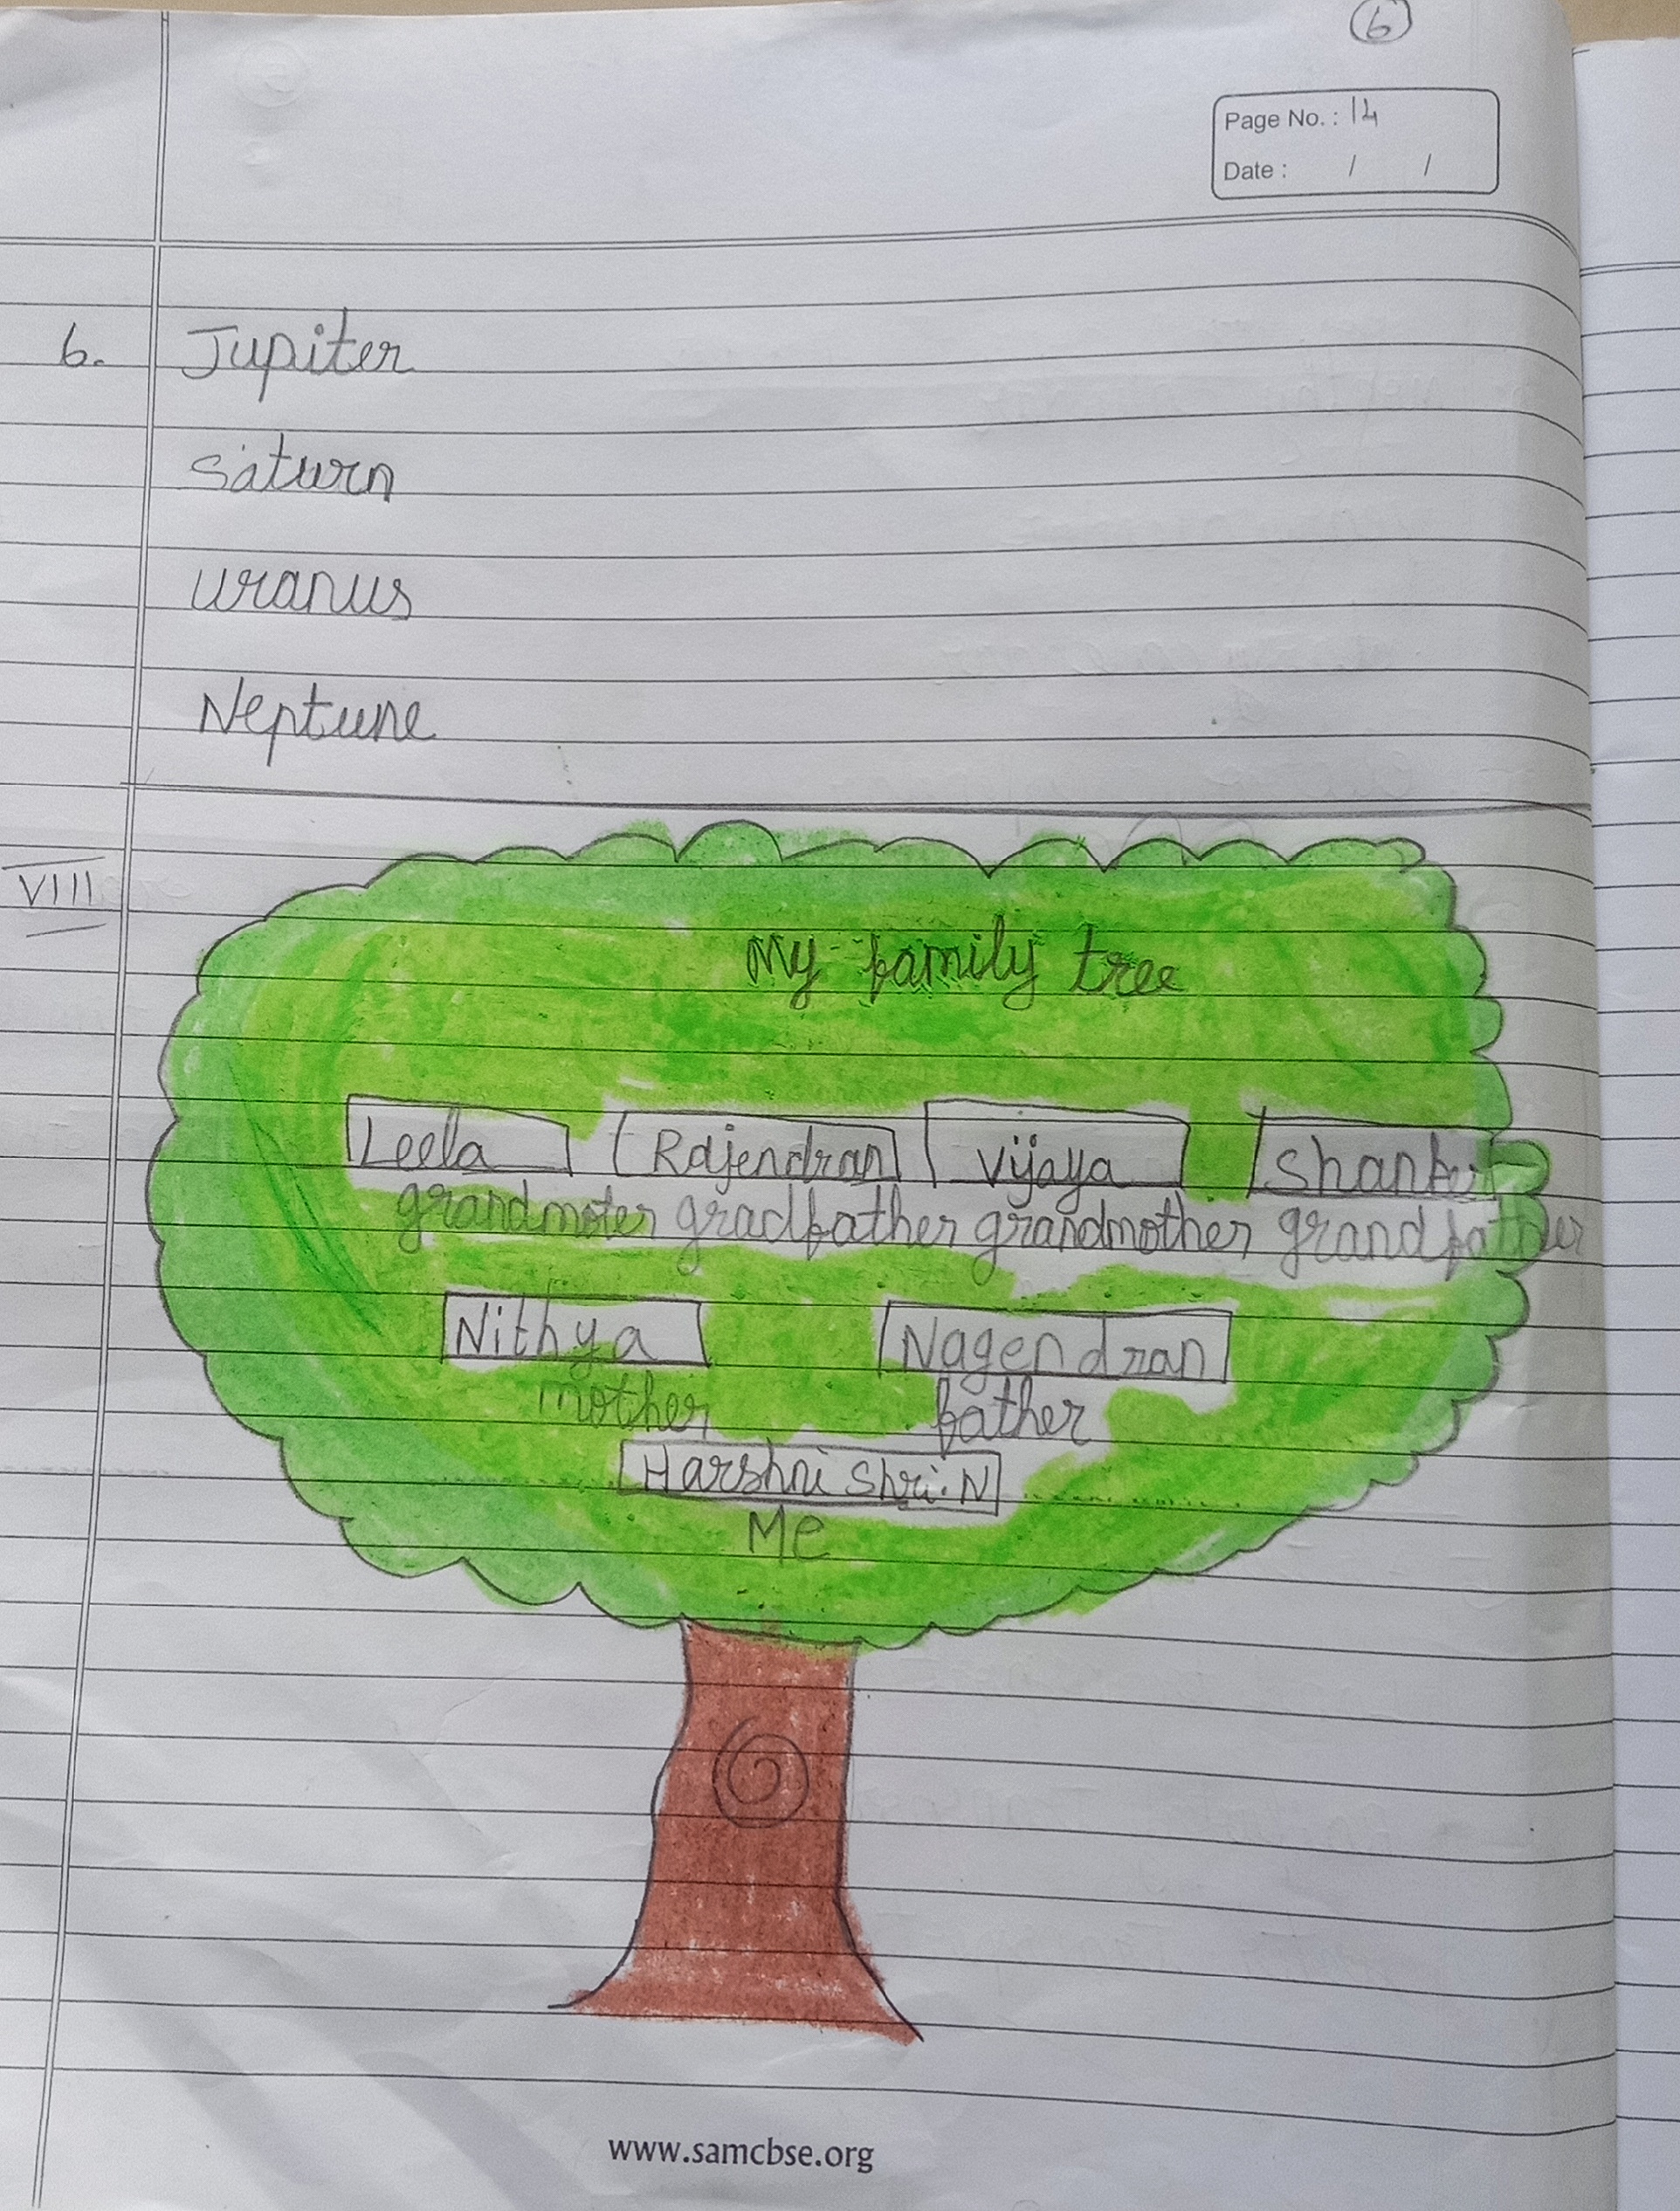 6
Page No. : 14
Date : / /
6. Jupiter
Saturn
Uranus
Neptune
VIII
My family tree
Leela Rajendran Vijaya
grandmoter gradfather grandmother grandfather
Nithya Nagendran
mother father
Harshni Shri.N
Me
www.samcbse.org